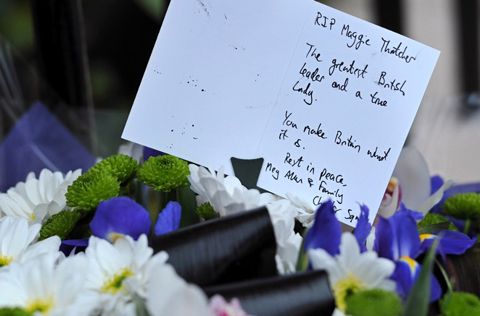 RIP Maggie Thatcher
The greatest British
leader and a true
Lady.
You make Britain what
it is.
Rest in peace,
Meg Alan & Family